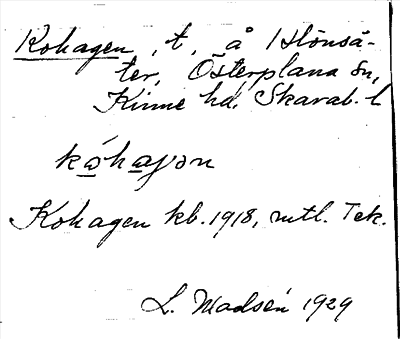 Kohagen, t, å Hönsä-
ter, Österplana sn,
Kinne hd, Skarab. l
kóhaɡən
Kohagen kb. 1918, mtl. Tek.
L. Madsén 1929